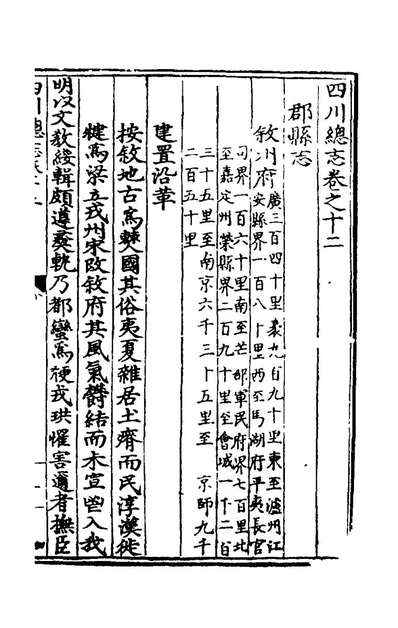 四川總志卷之十二
郡縣志
敘州府廣三百四十里袤九百九十里東至瀘州江
安縣界一百八十里西至馬湖府平夷長官
司界一百六十里南至芒部軍民府界七百里北
至嘉定州榮縣界二百九十里至會城一千二百
三十五里至南京六千三十五里至 京師九千
二百五十里
建置沿革
按敘地古為僰國其俗夷夏雜居土瘠而民淳漢徙
犍為梁立戎州宋改敘府其風氣鬱結而未宣迨入我
明以文教綏輯頗遵軌乃都蠻為梗戎珙罹害邇者撫臣
四川總志卷十二